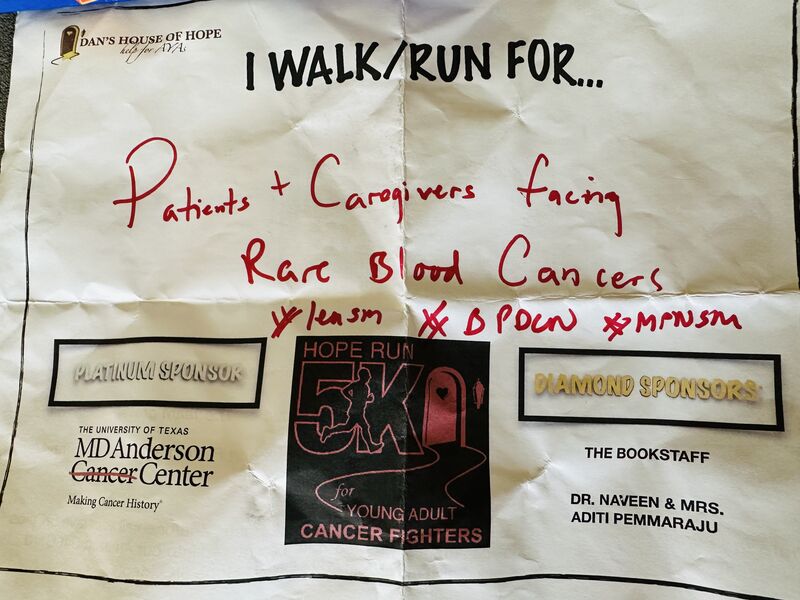 DAN'S HOUSE OF HOPE
help for AYAs
I WALK/RUN FOR...
Patients + Caregivers facing
Rare Blood Cancers
#leusm #BPDCN #MPNSM
PLATINUM SPONSOR
THE UNIVERSITY OF TEXAS
MD Anderson
Cancer Center
Making Cancer History®
HOPE RUN
5K
for
YOUNG ADULT
CANCER FIGHTERS
DIAMOND SPONSORS
THE BOOKSTAFF
DR. NAVEEN & MRS.
ADITI PEMMARAJU